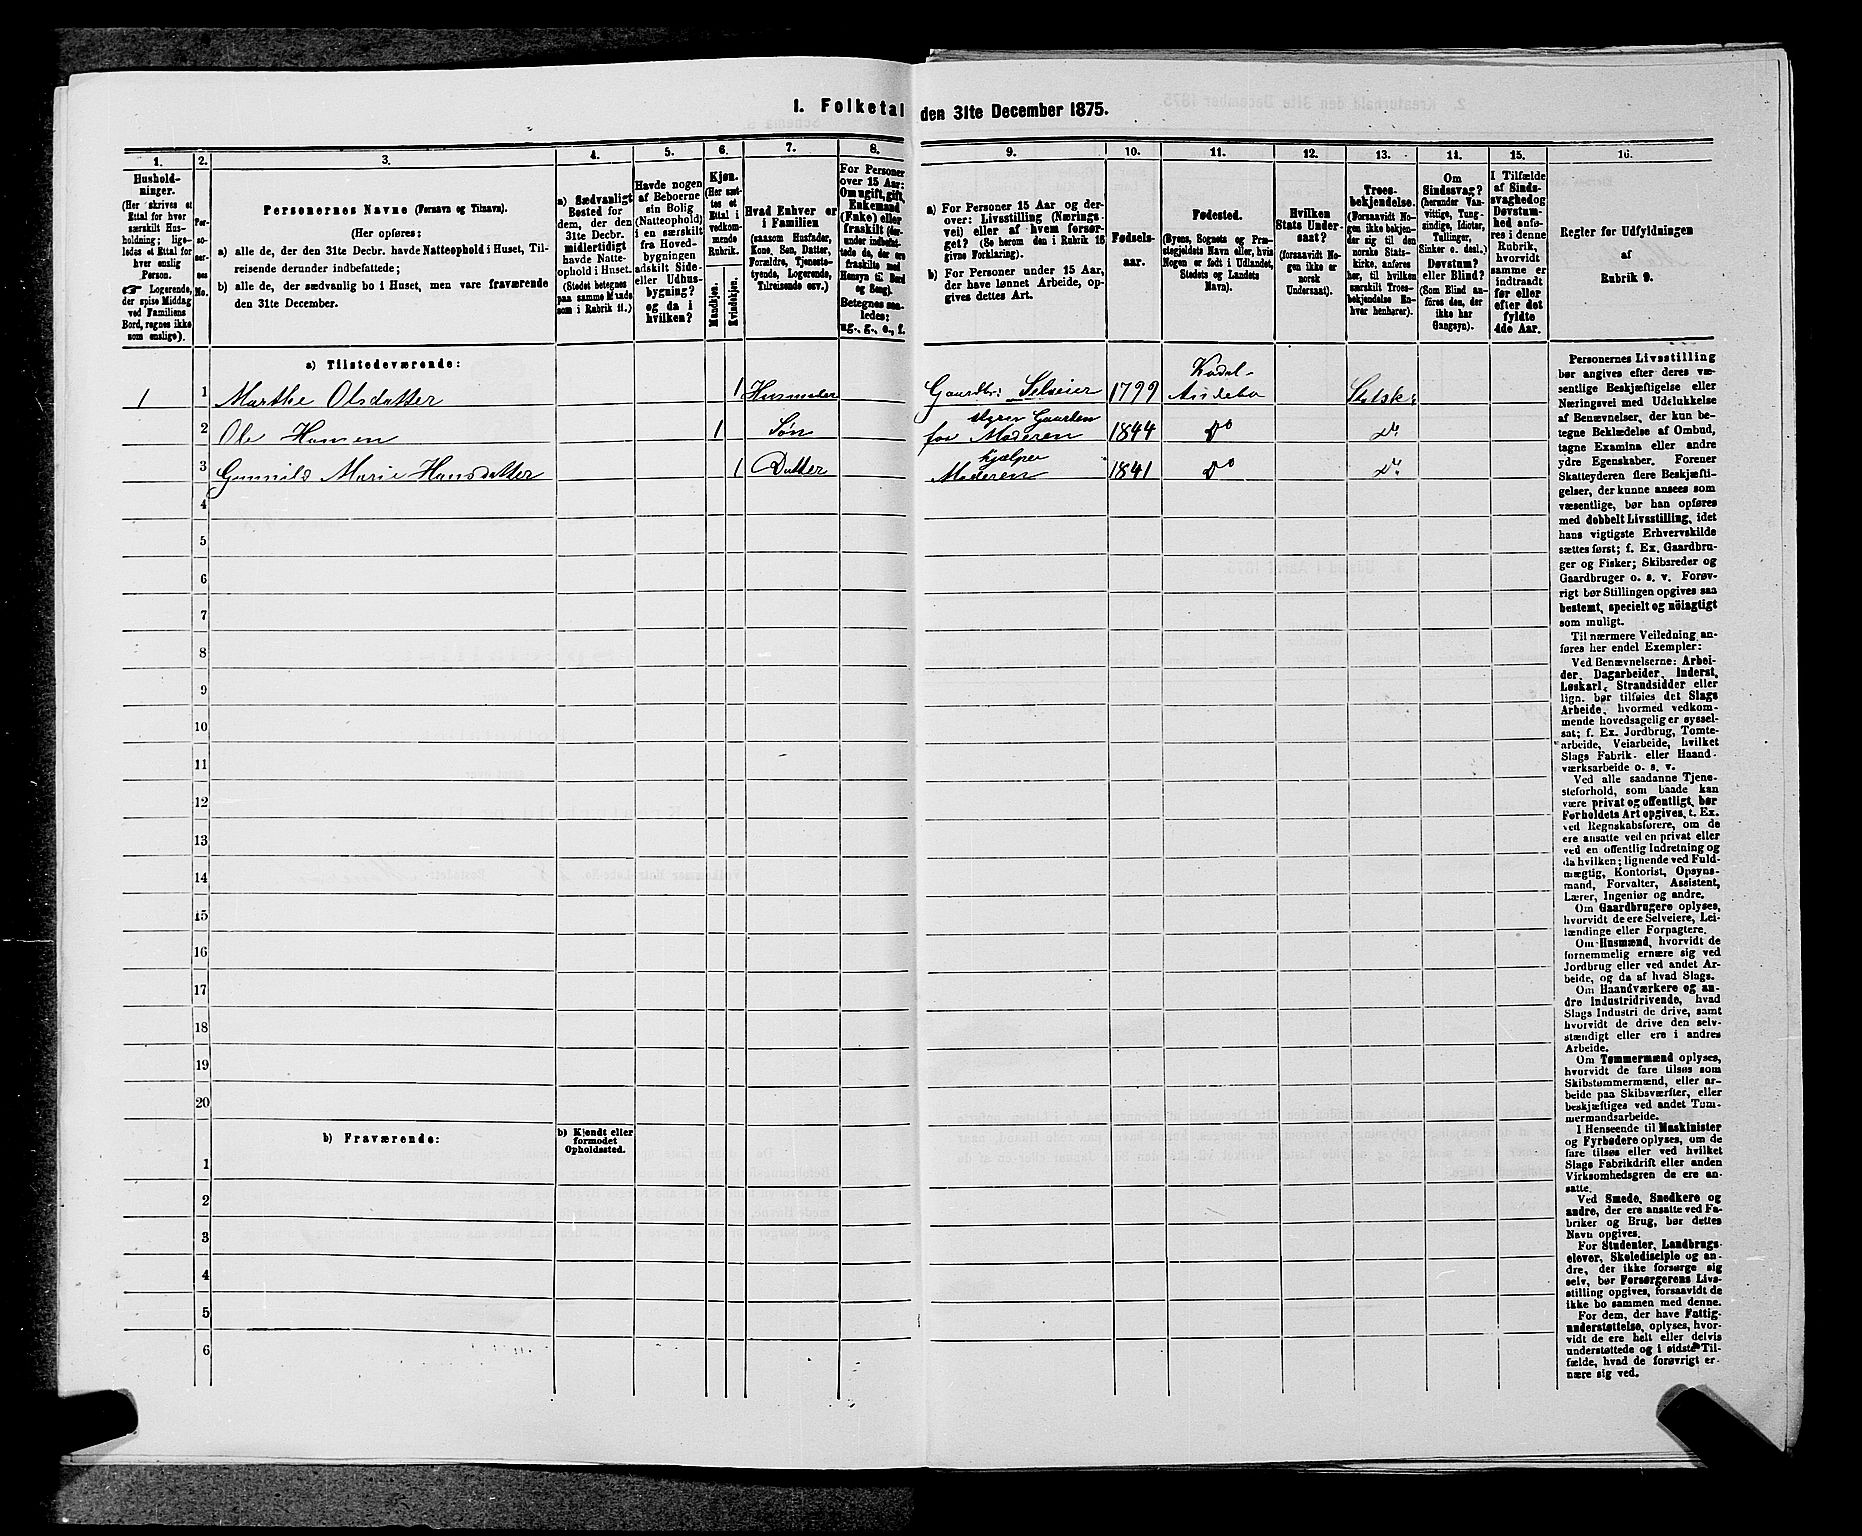 1. Folketal den 31te December 1875.
1.
2.
3.
4.
5.
6.
7.
8.
9.
10.
11.
12.
13.
14.
15.
16.
Hushold-
ninger.
(Her skrives et
Ettal for hver
særskilt Hus-
holdning; lige-
ledes et Ettal for
hver enslig
Person.
☛ Logerende,
der spise Middag
ved Familiens
Bord, regnes ikke
som enslige).
Per-
so-
ner-
nes
No.
Personernes Navne (Fornavn og Tilnavn).
(Her opføres:
a) alle de, der den 31te Decbr. havde Natteophold i Huset, Til-
reisende derunder indbefattede;
b) alle de, der sædvanlig bo i Huset, men vare fraværende
den 31te December.
a) Sædvanligt
Bosted for
dem, der den
31te Decbr.
midlertidigt
havde Natte-
ophold i Huset.
(Stedet betegnes
paa samme Maade
som i Rubrik 11.)
Havde nogen
af Beboerne
sin Bolig
(Natteophold)
i en særskilt
fra Hoved-
bygningen
adskilt Side-
eller Udhus-
bygning? og da i
hvilken?
Kjøn.
(Her sæt-
tes et
Ettal i
vedkom-
mende
Rubrik.
Mandkjøn.
Kvindekjøn.
Hvad Enhver er
i Familien
(saasom Husfader,
Kone, Søn, Datter,
Forældre, Tjeneste-
tyende, Logerende,
Tilreisende osv.)
For Personer
over 15 Aar:
Om ugift, gift,
Enkemand
(Enke) eller
fraskilt (der-
under indbefat-
tede da, der ere
fraskilte med
Hensyn til Bord
og Seng).
Betegnes saa-
ledes:
ug., g., e., f.
a) For Personer 15 Aar og der-
over: Livsstilling (Nærings-
vei) eller af hvem forsør-
get? (Se herom den i Rubrik 16
givne Forklaring).
b) For Personer under 15 Aar,
der have lønnet Arbeide, op-
gives dettes Art.
Fødsels-
aar.
Fødested.
(Byens, Sognets og Præ-
stegjeldets Navn eller, hvis
Nogen er født i Udlandet,
Stedets og Landets
Navn).
Hvilken
Stats Under-
saat?
(forsaavidt No-
gen ikke er
norsk
Undersaat).
Troes-
bekjendelse.
(Forsaavidt No-
gen ikke bekjen-
der sig til den
norske Stats-
kirke, anføres
her, til hvilken
særskilt Troes-
bekjendelse En-
hver henhører).
Om
Sindssvag?
(herunder Van-
vittige, Tung-
sindige, Idioter,
Tullinger,
Sinker o. desl.)
Døvstum?
eller Blind?
(Som Blind an-
føres den, der
ikke har
Gangsyn).
I Tilfælde
af Sinds-
svaghed og
Døvstum-
hed anfø-
res i denne
Rubrik,
hvorvidt
samme er
indtraadt
før eller
efter det
fyldte
4de Aar.
Regler for Udfyldningen
af
Rubrik 9.
a) Tilstedeværende:
1 1 Marthe Olsdatter 1 Husmoder Gaardbr: Selveier 1799 Kodal- Andebo Statsk:
2 Ole Hansen 1 Søn styrer Gaarden for Moderen 1844 Do Do
3 Gunnild Marie Hansdatter 1 Datter hjælper Moderen 1841 Do Do
4
5
6
7
8
9
10
11
12
13
14
15
16
17
18
19
20
b) Fraværende:
b) Kjendt eller
formodet
Opholdssted.
1
2
3
4
5
6
Personernes Livsstilling
bør angives efter deres væ-
sentlige Beskjæftigelse eller
Næringsvei med Udelukkelse
af Benævnelser, der kun be-
tegne Beklædelse af Ombud,
tagne Examina eller andre
ydre Egenskaber. Forener
Skatteyderen flere Beskjæfti-
gelser, der kunne ansees som
væsentlige, bør han opføres
med dobbelt Livsstilling, idet
hans vigtigste Erhvervskilde
sættes først; f. Ex. Gaardbru-
ger og Fisker; Skibsreder og
Gaardbruger o. s. v. Forøv-
rigt bør Stillingen opgives saa
bestemt, specielt og nöiagtigt
som muligt.
Til nærmere Veiledning an-
føres her endel Exempler:
Ved Benævnelserne: Arbei-
der, Dagarbeider, Inderst,
Løskarl, Strandsidder eller
lign. bør tilføies det Slags
Arbeide, hvormed vedkom-
mende hovedsagelig er syssel-
sat; f. Ex. Jordbrug, Tomte-
arbeide, Veiarbeide, hvilket
Slags Fabrik- eller Haand-
værksarbeide o. s. v.
Ved alle saadanne Tjene-
steforhold, som baade kan
være privat og offentligt, bør
Forholdets Art opgives, t. Ex.
ved Regnskabsførere, om de
ere ansatte ved en privat eller
ved en offentlig Indretning og
da hvilken; lignende ved Fuld-
mægtig, Kontorist, Opsyns-
mand, Forvalter, Assistent,
Lærer, Ingeniør og andre.
Om Gaardbrugere oplyses,
hvorvidt de ere Selveiere, Lei-
lændinge eller Forpagtere.
Om Husmænd, hvorvidt de
fornemmelig ernære sig ved
Jordbrug eller ved andet Ar-
beide, og da af hvad Slags.
Om Haandværkere og an-
dre Industridrivende, hvad
Slags Industri de drive, samt
hvorvidt de drive den selv-
stændigt eller ere i andres
Arbeide.
Om Tømmermænd oplyses,
hvorvidt de fare tilsøs som
Skibstømmermænd, eller ar-
beide paa Skibsværfter, eller
beskjæftiges ved andet Tøm-
mermandsarbeide.
I Henseende til Maskinister
og Fyrbødere oplyses, om de
fare tilsøs eller ved hvilket
Slags Fabrikdrift eller anden
Virksomhedsgren de ere an-
satte.
Ved Smede, Snedkere og
andre, der ere ansatte ved Fa-
briker og Brug, bør dettes
Navn opgives.
For Studenter, Landbrugs-
elever, Skoledisciple og an-
dre, der ikke forsørge sig
selv, bør Forsørgerens Livs-
stilling opgives, forsaavidt de
ikke bo sammen med denne.
For dem, der have Fattig-
understøttelse, oplyses, hvor-
vidt de ere helt eller delvis
understøttede og i sidste Til-
fælde, hvad de forøvrigt er-
nære sig ved.